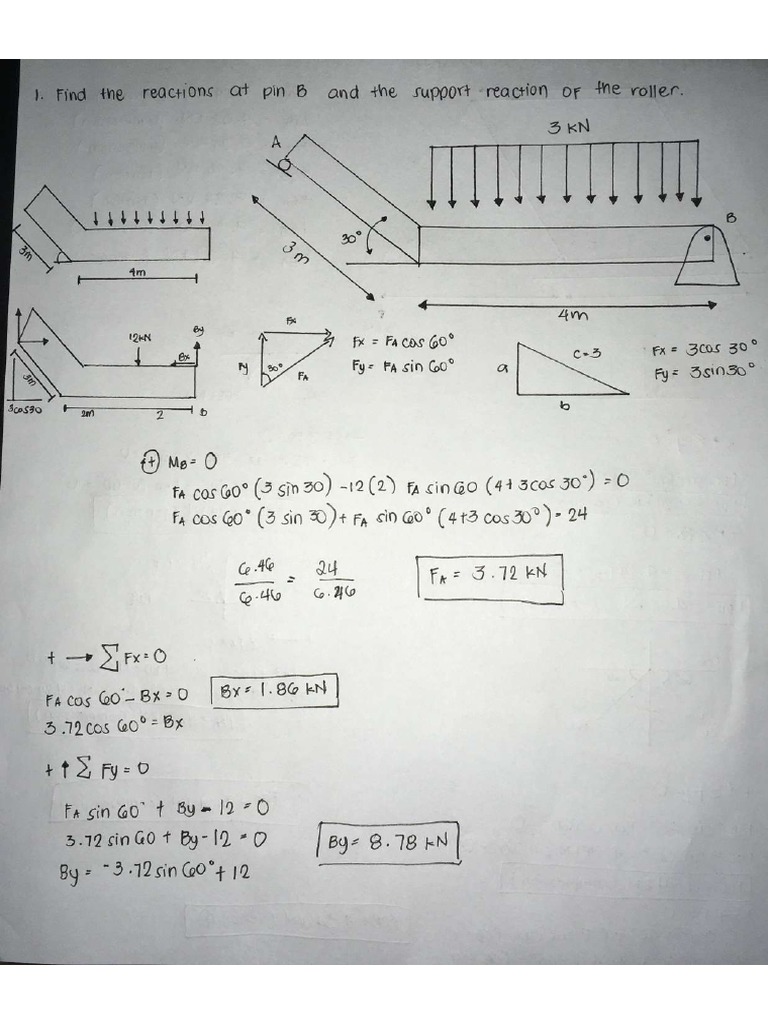 1. Find the reactions at pin B and the support reaction of the roller.
3 KN
A
B
30°
3m
4m
3m
4m
12kN
By
Bx
3m
3cos30
2m 2 B
Fx
Fy
30°
FA
Fx = FA cos 60°
Fy = FA sin 60°
a
c=3
b
Fx = 3cos 30°
Fy = 3sin30°
+ MB = 0
FA cos 60° (3 sin 30) - 12(2) FA sin 60 (4+3cos 30°) = 0
FA cos 60° (3 sin 30) + FA sin 60° (4+3 cos 30°) = 24
6.46 = 24
6.46 6.46
FA = 3.72 KN
+ → Σ Fx = 0
FA cos 60° - Bx = 0
Bx = 1.86 KN
3.72 cos 60° = Bx
+ ↑ Σ Fy = 0
FA sin 60° + By - 12 = 0
3.72 sin 60 + By - 12 = 0
By = 8.78 KN
By = -3.72 sin 60° + 12